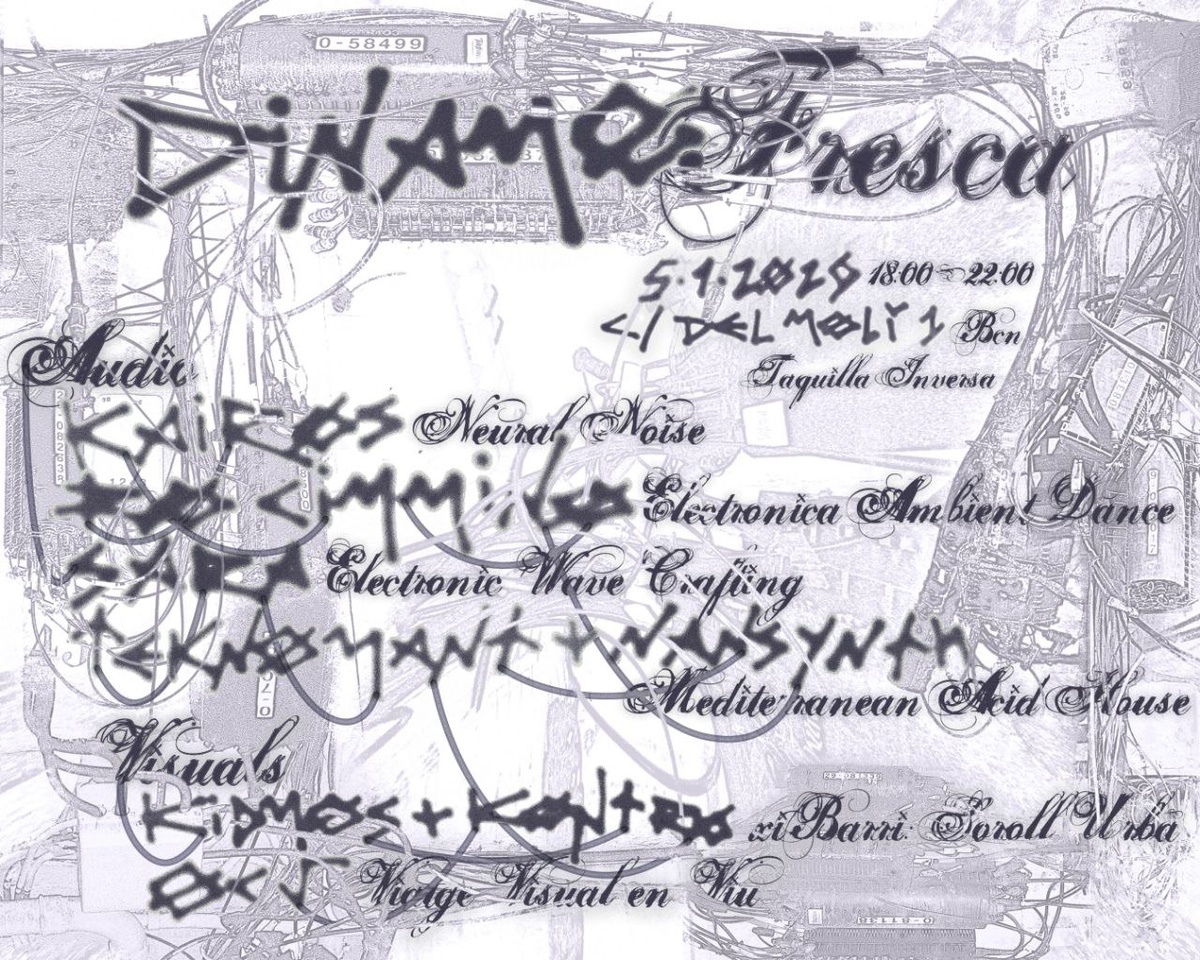 0-58499
DiNAMO Fresca
5.1.2020 18:00 - 22:00
C/ DEL MOLI 1 Bcn
Taquilla Inversa
Audio
KAiROS Neural Noise
Electronica Ambient Dance
Electronic Wave Crafting
TEKNOMANT + NAUSYNTH
Mediterranean Acid House
Visuals
KiDMOS + KONTRO xiBarri: Soroll Urbà
Viatge Visual en Viu